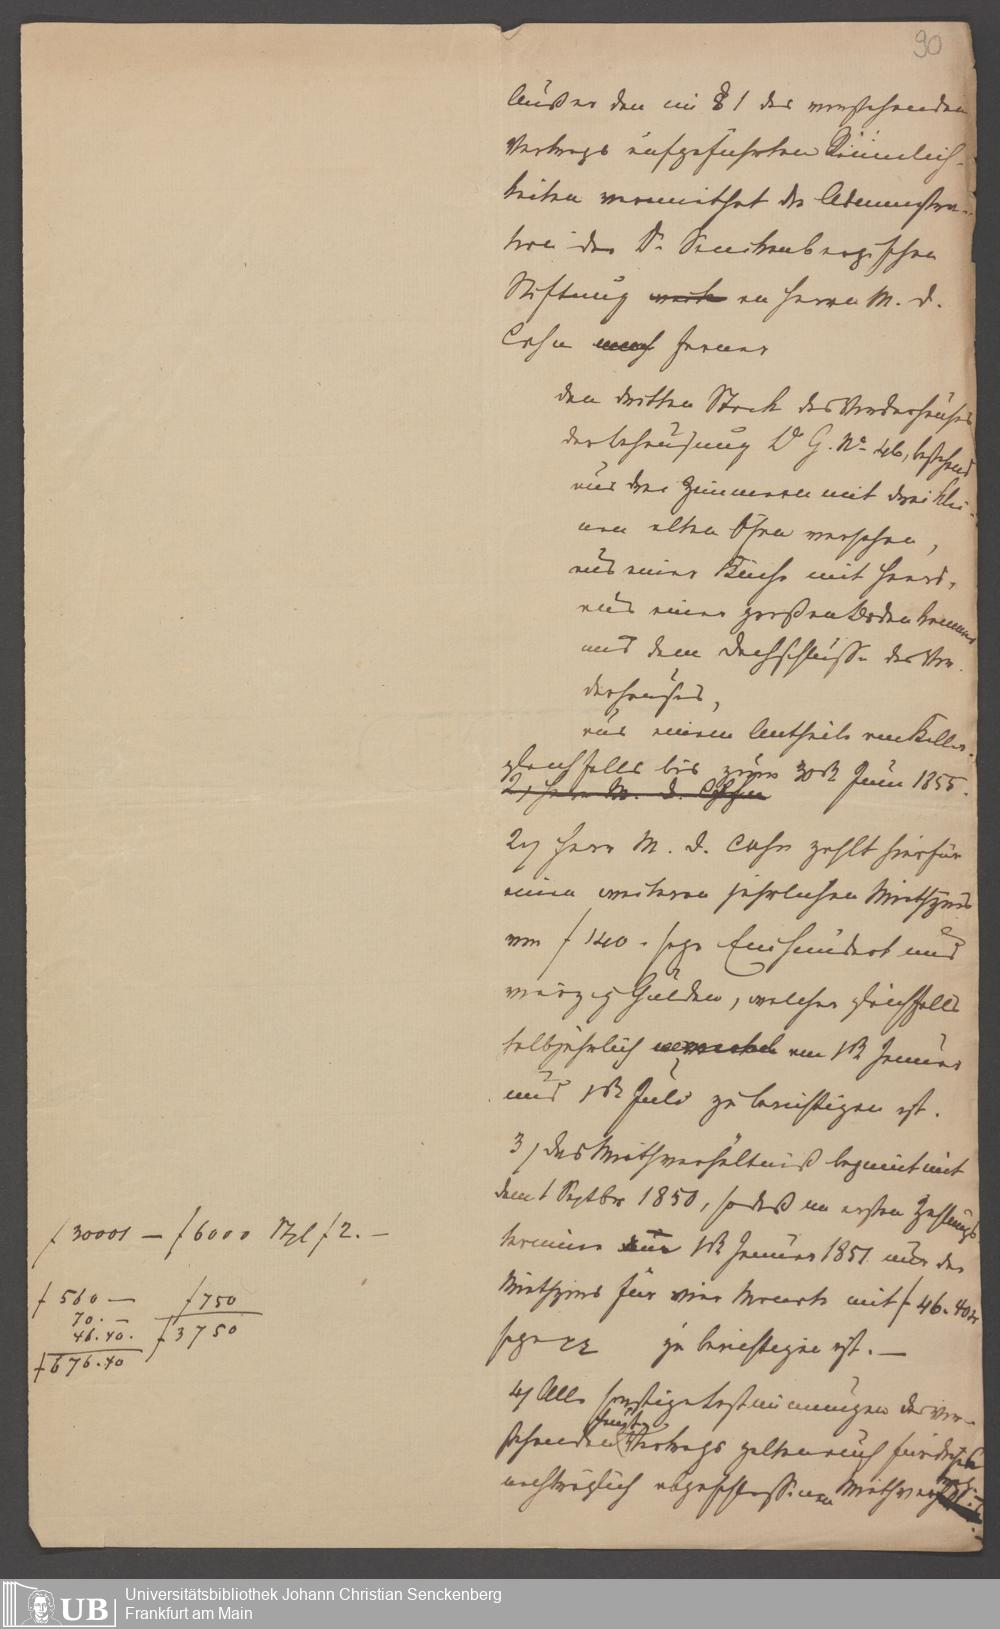 90
Außer den im § 1 des vorstehenden
Vertrags aufgeführten Räumlich-
keiten vermiethet die Administra-
tion der Dr. Senckenbergischen
Stiftung an Herrn M. D.
Cahn noch ferner
den dritten Stock des Vorderhauses
der Behausung Lit. G. No. 46, bestehend
aus drei Zimmern mit drei klei-
nen alten Öfen versehen,
aus einer Küche mit Heerd,
aus einer großen Bodenkammer
auf dem Dachschlusse des Vor-
derhauses,
aus einem Antheile am Keller.
gleichfalls bis zum 30ten Juni 1855.
2, Herr M. D. Cahn
2, Herr M. D. Cahn zahlt hierfür
einen weiteren jährlichen Miethzins
von f 140. sage Einhundert und
vierzig Gulden, welcher gleichfalls
halbjährlich am 1ten Januar
und 1ten Juli zu berichtigen ist.
3, das Miethverhältniß beginnt mit
dem 1 Septber 1850, sodaß im ersten Zahlungs
termine 1ten Januar 1851 nur der
Miethzins für vier Monate mit f 46. 40 xr
sage zu berichtigen ist. —
4, Alle sonstige Bestimmungen des vor-
stehenden Vertrags gelten auch für dieses
nachträglich abgeschlossenen
f 30001 — f 6000 f 2. —
f 560 —
70. —
46. 40.
f 676. 40
f 750
f 3750
UB
Universitätsbibliothek Johann Christian Senckenberg
Frankfurt am Main